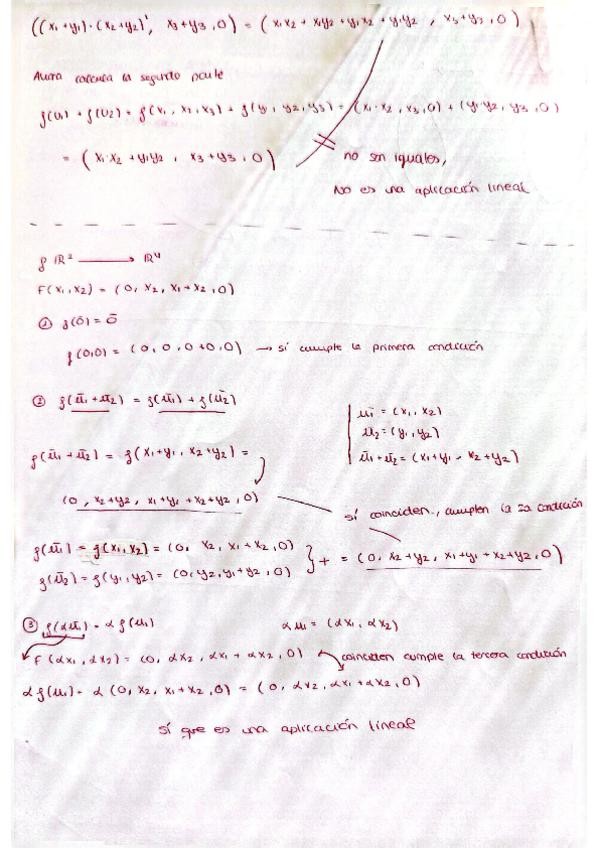 ((x₁+y₁)·(x₂+y₂), x₃+y₃, 0) = (x₁x₂ + x₁y₂ + y₁x₂ + y₁y₂, x₃+y₃, 0)
Ahora la segunda parte
f(u₁) + f(u₂) = f(x₁, x₂, x₃) + f(y₁, y₂, y₃) = (x₁·x₂, x₃, 0) + (y₁·y₂, y₃, 0)
= (x₁·x₂ + y₁y₂, x₃+y₃, 0)
no son iguales,
No es una aplicación lineal
f ℝ² ⟶ ℝ⁴
F(x₁, x₂) = (0, x₂, x₁+x₂, 0)
① f(ō) = ō
f(0,0) = (0, 0, 0+0, 0) → sí cumple la primera condición
② f(ū₁+ū₂) = f(ū₁) + f(ū₂)
ū₁ = (x₁, x₂)
ū₂ = (y₁, y₂)
ū₁+ū₂ = (x₁+y₁, x₂+y₂)
f(ū₁+ū₂) = f(x₁+y₁, x₂+y₂) =
(0, x₂+y₂, x₁+y₁+x₂+y₂, 0)
sí coinciden, cumplen la 2a condición
f(ū₁) = f(x₁, x₂) = (0, x₂, x₁+x₂, 0)
f(ū₂) = f(y₁, y₂) = (0, y₂, y₁+y₂, 0)
} + = (0, x₂+y₂, x₁+y₁+x₂+y₂, 0)
③ f(αū₁) = α f(u₁)
αu₁ = (αx₁, αx₂)
F(αx₁, αx₂) = (0, αx₂, αx₁ + αx₂, 0)
coinciden cumple la tercera condición
αf(u₁) = α(0, x₂, x₁+x₂, 0) = (0, αx₂, αx₁+αx₂, 0)
sí que es una aplicación lineal